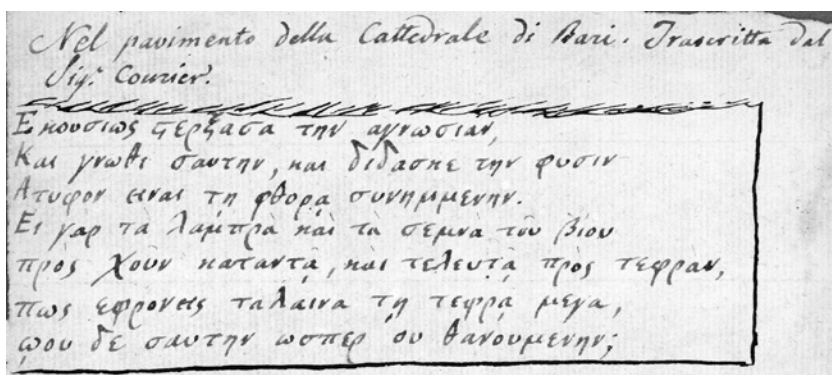 Nel pavimento della Cattedrale di Bari. Trascritta dal
Sigr. Courier.
Εκουσιως στερξασα την αγνωσιαν,
Και γνωθι σαυτην, και διδασκε την φυσιν
Ατυφον ειναι τη φθορα συνημμενην.
Ει γαρ τα λαμπρα και τα σεμνα του βιου
προς χουν καταντα, και τελευτα προς τεφραν,
πως εφρονεις ταλαινα τη τεφρα μεγα,
ωου δε σαυτην ωσπερ ου θανουμενην;